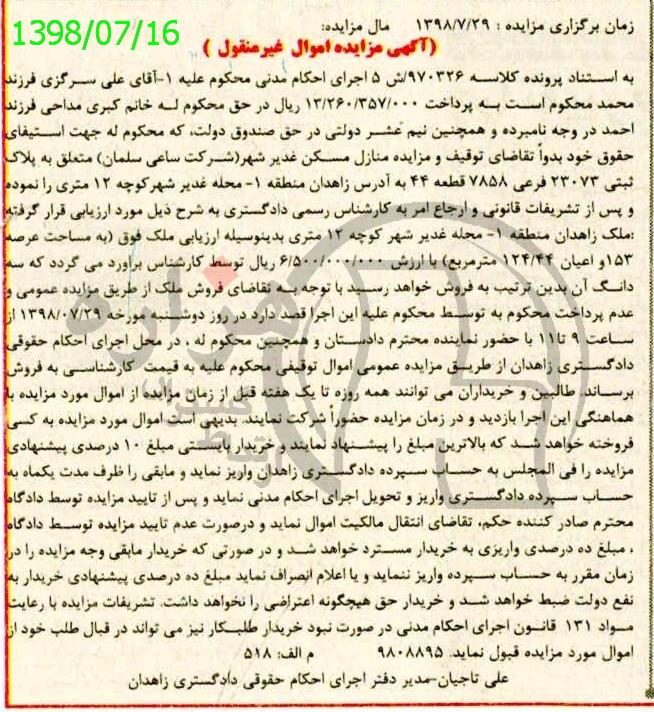 زمان برگزاری مزایده : ۱۳۹۸/۷/۲۹ مال مزایده:
1398/07/16
(آگهی مزایده اموال غیرمنقول )
به استناد پرونده کلاسه ۹۷۰۳۲۶/ش ۵ اجرای احکام مدنی محکوم علیه ۱-آقای علی سرگزی فرزند
محمد محکوم است به پرداخت ۱۳/۲۶۰/۳۵۷/۰۰۰ ریال در حق محکوم له خانم کبری مداحی فرزند
احمد در وجه نامبرده و همچنین نیم عشر دولتی در حق صندوق دولت، که محکوم له جهت استیفای
حقوق خود بدواً تقاضای توقیف و مزایده منازل مسکن غدیر شهر(شرکت ساعی سلمان) متعلق به پلاک
ثبتی ۲۳۰۷۳ فرعی ۷۸۵۸ قطعه ۴۴ به آدرس زاهدان منطقه ۱- محله غدیر شهرکوچه ۱۲ متری را نموده
و پس از تشریفات قانونی و ارجاع امر به کارشناس رسمی دادگستری به شرح ذیل مورد ارزیابی قرار گرفته
:ملک زاهدان منطقه ۱- محله غدیر شهر کوچه ۱۲ متری بدینوسیله ارزیابی ملک فوق (به مساحت عرصه
۱۵۳و اعیان ۱۲۴/۴۴ مترمربع) با ارزش ۶/۵۰۰/۰۰۰/۰۰۰ ریال توسط کارشناس برآورد می گردد که سه
دانگ آن بدین ترتیب به فروش خواهد رسید با توجه به تقاضای فروش ملک از طریق مزایده عمومی و
عدم پرداخت محکوم به توسط محکوم علیه این اجرا قصد دارد در روز دوشنبه مورخه ۱۳۹۸/۰۷/۲۹ از
ساعت ۹ تا۱۱ با حضور نماینده محترم دادستان و همچنین محکوم له ، در محل اجرای احکام حقوقی
دادگستری زاهدان از طریق مزایده عمومی اموال توقیفی محکوم علیه به قیمت کارشناسی به فروش
برساند. طالبین و خریداران می توانند همه روزه تا یک هفته قبل از زمان مزایده از اموال مورد مزایده با
هماهنگی این اجرا بازدید و در زمان مزایده حضوراً شرکت نمایند. بدیهی است اموال مورد مزایده به کسی
فروخته خواهد شد که بالاترین مبلغ را پیشنهاد نمایند و خریدار بایستی مبلغ ۱۰ درصدی پیشنهادی
مزایده را فی المجلس به حساب سپرده دادگستری زاهدان واریز نماید و مابقی را ظرف مدت یکماه به
حساب سپرده دادگستری واریز و تحویل اجرای احکام مدنی نماید و پس از تایید مزایده توسط دادگاه
محترم صادر کننده حکم، تقاضای انتقال مالکیت اموال نماید و درصورت عدم تایید مزایده توسط دادگاه
، مبلغ ده درصدی واریزی به خریدار مسترد خواهد شد و در صورتی که خریدار مابقی وجه مزایده را در
زمان مقرر به حساب سپرده واریز ننماید و یا اعلام انصراف نماید مبلغ ده درصدی پیشنهادی خریدار به
نفع دولت ضبط خواهد شد و خریدار حق هیچگونه اعتراضی را نخواهد داشت. تشریفات مزایده با رعایت
مواد ۱۳۱ قانون اجرای احکام مدنی در صورت نبود خریدار طلبکار نیز می تواند در قبال طلب خود از
اموال مورد مزایده قبول نماید. ۹۸۰۸۸۹۵ م الف: ۵۱۸
علی تاجیان-مدیر دفتر اجرای احکام حقوقی دادگستری زاهدان